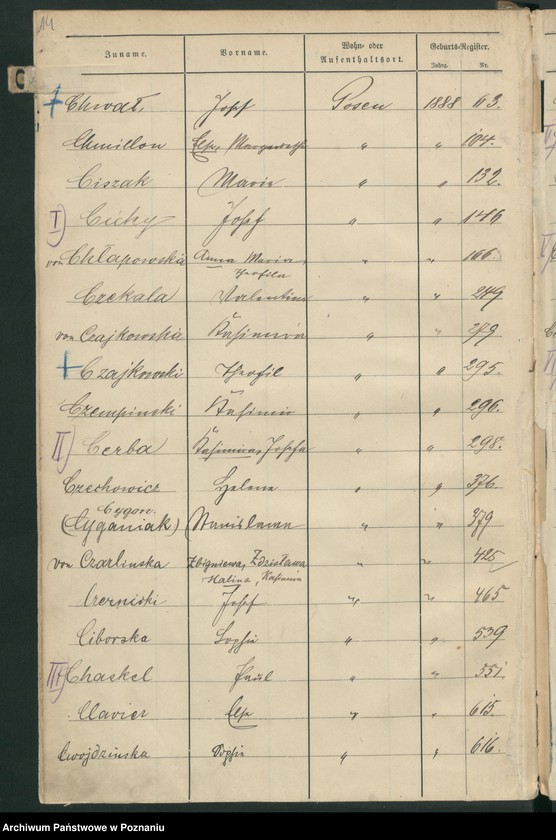 14
Zuname. Vorname. Wohn- oder Aufenthaltsort. Geburts-Register. Jahrg. Nr.
Chwat. Josef Posen 1888 63.
Chmillon Else, Margarethe " " 104.
Ciszak Marie " " 132.
I) Cichy Josef " " 146
von Chłapowska Anna Maria, Theofila " " 166
Czekala Valentin " " 249
von Czajkowska Kasimira " " 279
Czajkowski Theofil " " 295.
Czempinski Kasimir " " 296.
II) Cerba Kasimira, Josefa " " 298.
Czechowicz Helene " " 376
Cygan.
(Cyganiak) Stanislawa " " 379
von Czarlinska Zbigniewa, Zdzisława Halina, Kasimira " " 425
Czerniski Josef " " 465
Ciborska Sophie " " 539
III) Chaskel Paul " " 551
Clavier Else " " 615.
Cwojdzinska Sophie " " 616.
Archiwum Państwowe w Poznaniu